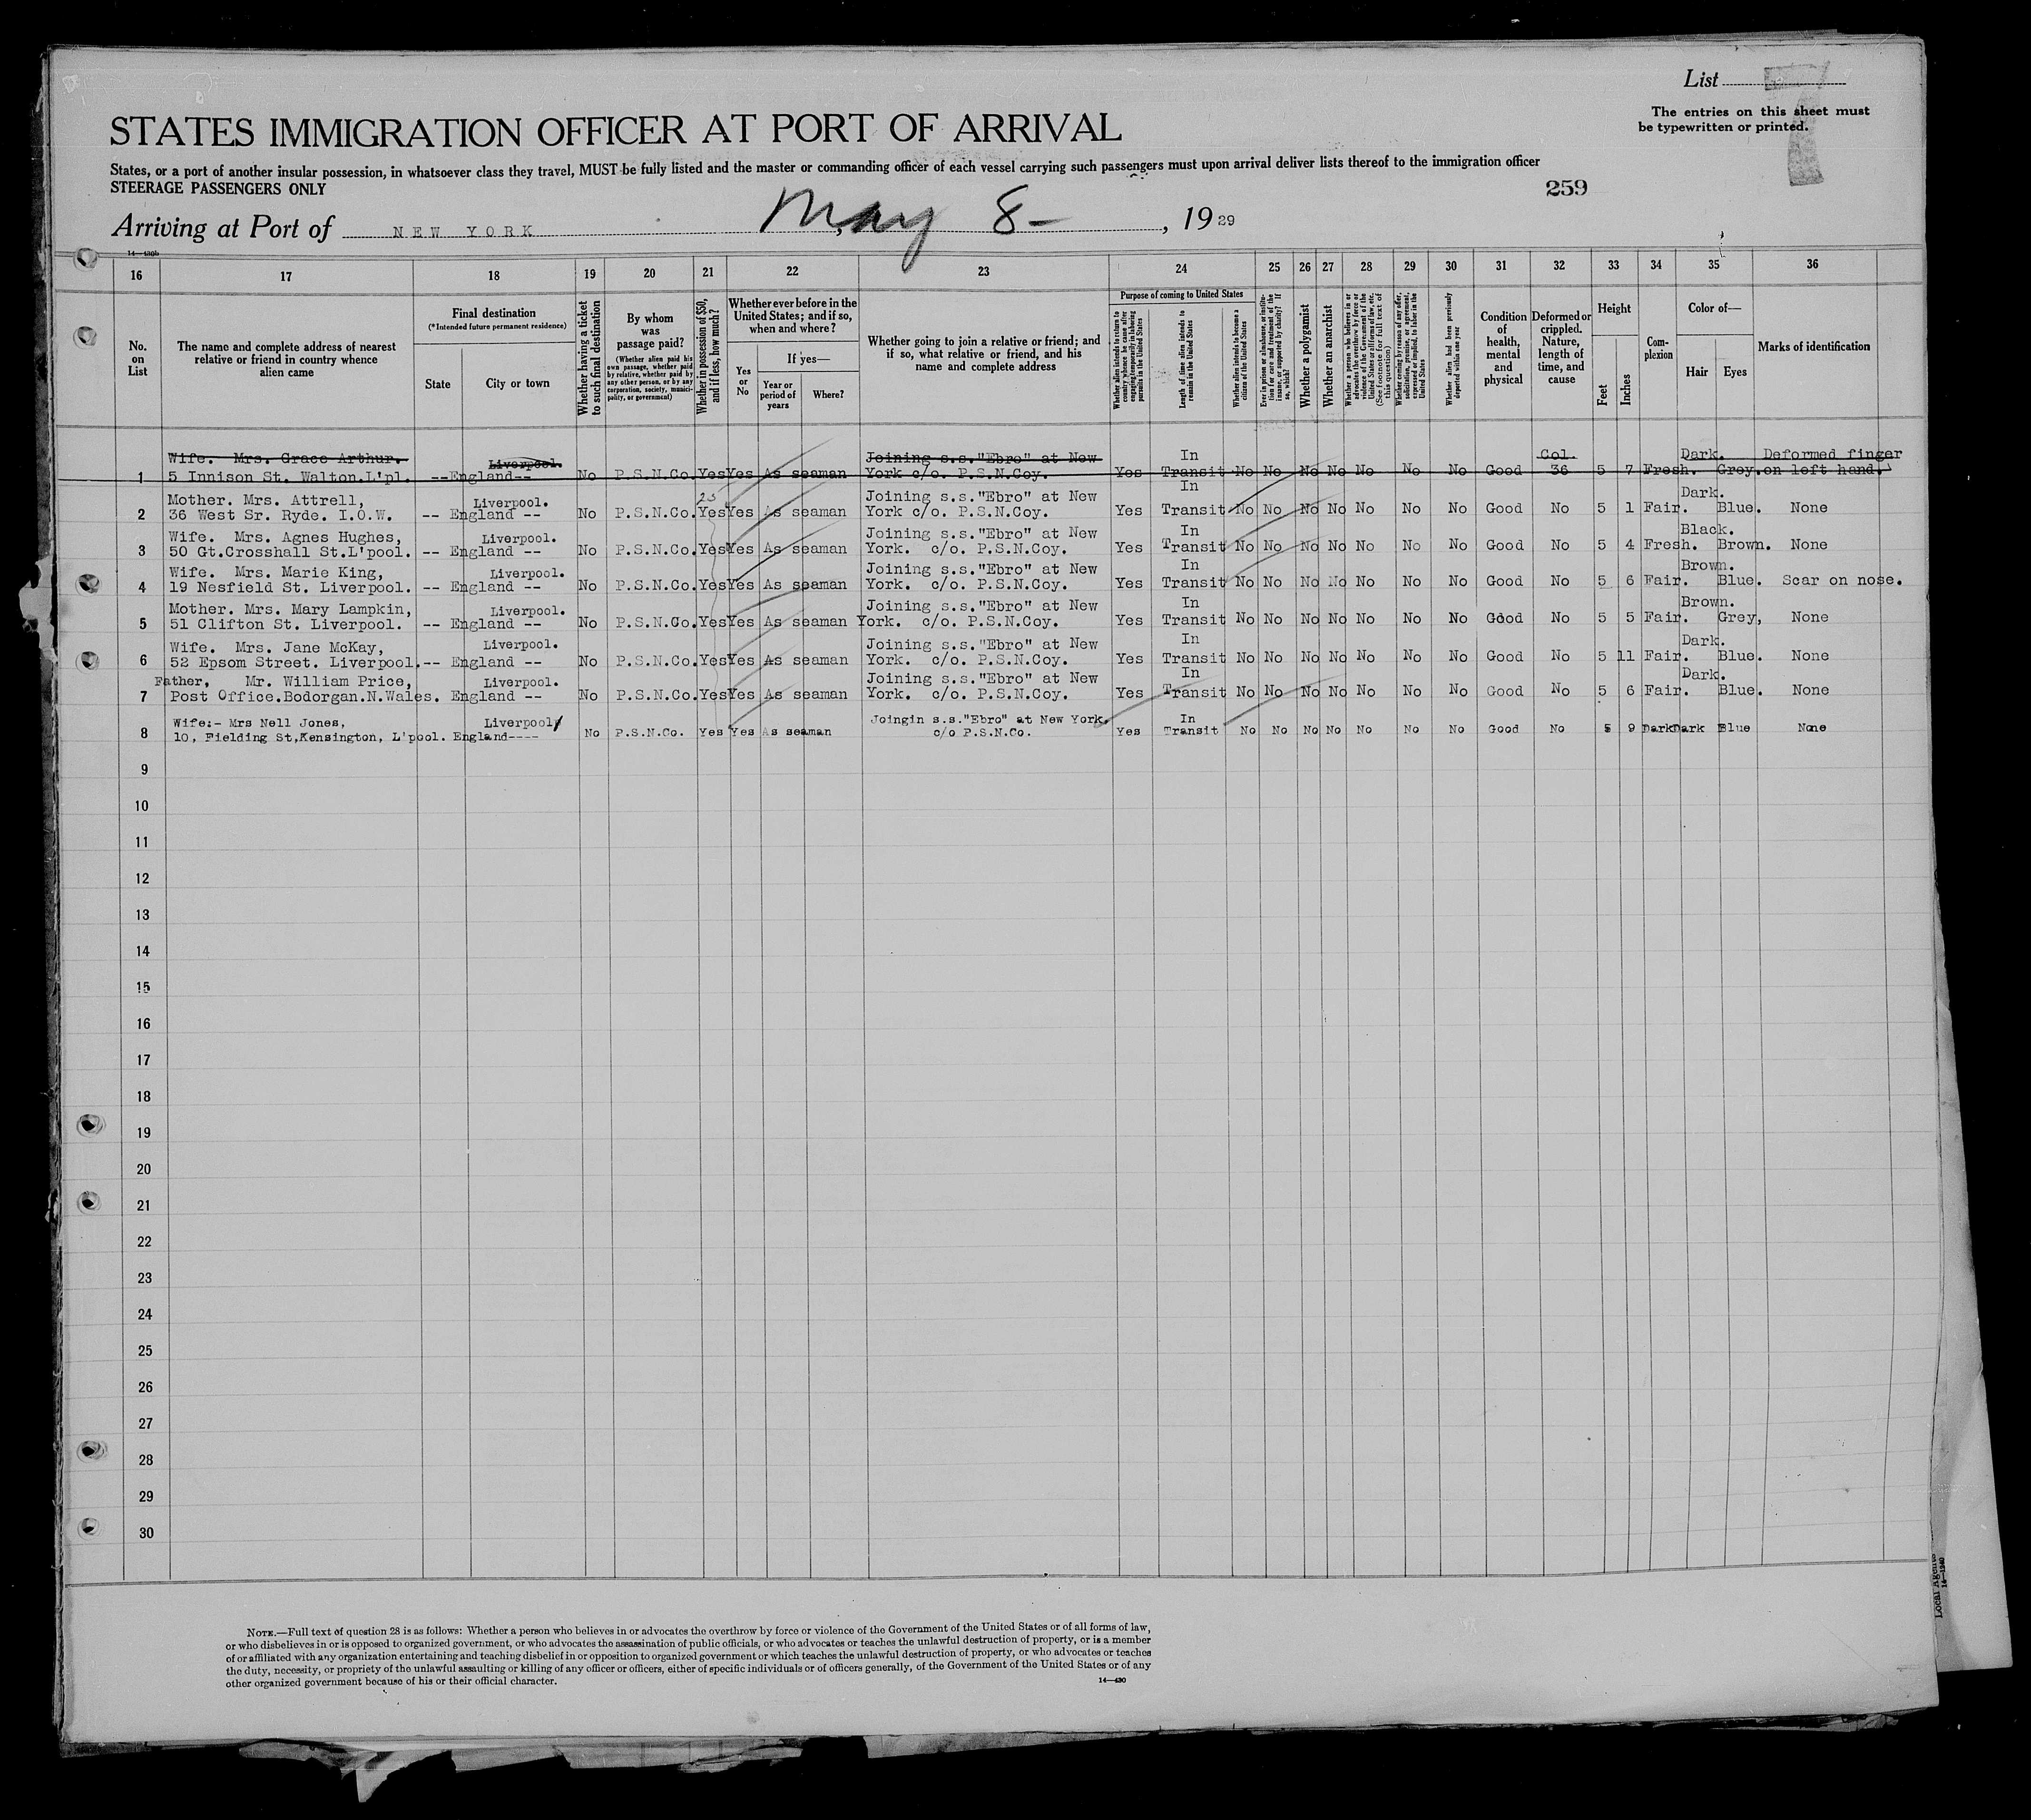 List
The entries on this sheet must
be typewritten or printed.
STATES IMMIGRATION OFFICER AT PORT OF ARRIVAL
States, or a port of another insular possession, in whatsoever class they travel, MUST be fully listed and the master or commanding officer of each vessel carrying such passengers must upon arrival deliver lists thereof to the immigration officer
STEERAGE PASSENGERS ONLY
259
Arriving at Port of NEW YORK May 8- , 1929
14—430b
16 17 18 19 20 21 22 23 24 25 26 27 28 29 30 31 32 33 34 35 36
No.
on
List
The name and complete address of nearest
relative or friend in country whence
alien came
Final destination
(*Intended future permanent residence)
State
City or town
Whether having a ticket
to such final destination
By whom
was
passage paid?
(Whether alien paid his
own passage, whether paid
by relative, whether paid by
any other person, or by any
corporation, society, munici-
pality, or government)
Whether in possession of $50,
and if less, how much?
Whether ever before in the
United States; and if so,
when and where?
Yes
or
No
If yes—
Year or
period of
years
Where?
Whether going to join a relative or friend; and
if so, what relative or friend, and his
name and complete address
Purpose of coming to United States
Whether alien intends to return to
country whence he came after
engaging temporarily in laboring
pursuits in the United States
Length of time alien intends to
remain in the United States
Whether alien intends to become a
citizen of the United States
Ever in prison or almshouse, or institu-
tion for care and treatment of the
insane, or supported by charity? If
so, which?
Whether a polygamist
Whether an anarchist
Whether a person who believes in or
advocates the overthrow by force or
violence of the Government of the
United States or all forms of law, etc.
(See footnote for full text of
this question)
Whether coming by reason of any offer,
solicitation, promise, or agreement,
expressed or implied, to labor in the
United States
Whether alien had been previously
deported within one year
Condition
of
health,
mental
and
physical
Deformed or
crippled.
Nature,
length of
time, and
cause
Height
Feet
Inches
Com-
plexion
Color of—
Hair
Eyes
Marks of identification
Wife. Mrs. Grace Arthur. Liverpool. Joining s.s."Ebro" at New In Col. Dark. Deformed finger
1 5 Innison St. Walton.L'pl. --England-- No P.S.N.Co. Yes Yes As seaman York c/o. P.S.N.Coy. Yes Transit No No No No No No No Good 36 5 7 Fresh. Grey. on left hand.
Mother. Mrs. Attrell, Liverpool. 25 Joining s.s."Ebro" at New In Dark.
2 36 West Sr. Ryde. I.O.W. -- England -- No P.S.N.Co. Yes Yes As seaman York c/o. P.S.N.Coy. Yes Transit No No No No No No No Good No 5 1 Fair. Blue. None
Wife. Mrs. Agnes Hughes, Liverpool. Joining s.s."Ebro" at New In Black.
3 50 Gt.Crosshall St.L'pool. -- England -- No P.S.N.Co. Yes Yes As seaman York. c/o. P.S.N.Coy. Yes Transit No No No No No No No Good No 5 4 Fresh. Brown. None
Wife. Mrs. Marie King, Liverpool. Joining s.s."Ebro" at New In Brown.
4 19 Nesfield St. Liverpool. -- England -- No P.S.N.Co. Yes Yes As seaman York. c/o. P.S.N.Coy. Yes Transit No No No No No No No Good No 5 6 Fair. Blue. Scar on nose.
Mother. Mrs. Mary Lampkin, Liverpool. Joining s.s."Ebro" at New In Brown.
5 51 Clifton St. Liverpool. -- England -- No P.S.N.Co. Yes Yes As seaman York. c/o. P.S.N.Coy. Yes Transit No No No No No No No Good No 5 5 Fair. Grey, None
Wife. Mrs. Jane McKay, Liverpool. Joining s.s."Ebro" at New In Dark.
6 52 Epsom Street. Liverpool. -- England -- No P.S.N.Co. Yes Yes As seaman York. c/o. P.S.N.Coy. Yes Transit No No No No No No No Good No 5 11 Fair. Blue. None
Father, Mr. William Price, Liverpool. Joining s.s."Ebro" at New In Dark.
7 Post Office.Bodorgan.N.Wales. England -- No P.S.N.Co. Yes Yes As seaman York. c/o. P.S.N.Coy. Yes Transit No No No No No No No Good No 5 6 Fair. Blue. None
Wife:- Mrs Nell Jones, Liverpool Joingin s.s."Ebro" at New York. In
8 10, Fielding St,Kensington, L'pool. England---- No P.S.N.Co. Yes Yes As seaman c/o P.S.N.Co. Yes Transit No No No No No No No Good No 5 9 Dark Dark Blue None
9
10
11
12
13
14
15
16
17
18
19
20
21
22
23
24
25
26
27
28
29
30
NOTE.—Full text of question 28 is as follows: Whether a person who believes in or advocates the overthrow by force or violence of the Government of the United States or of all forms of law,
or who disbelieves in or is opposed to organized government, or who advocates the assassination of public officials, or who advocates or teaches the unlawful destruction of property, or is a member
of or affiliated with any organization entertaining and teaching disbelief in or opposition to organized government or which teaches the unlawful destruction of property, or who advocates or teaches
the duty, necessity, or propriety of the unlawful assaulting or killing of any officer or officers, either of specific individuals or of officers generally, of the Government of the United States or of any
other organized government because of his or their official character.
14—430
Local Agents
14—1240